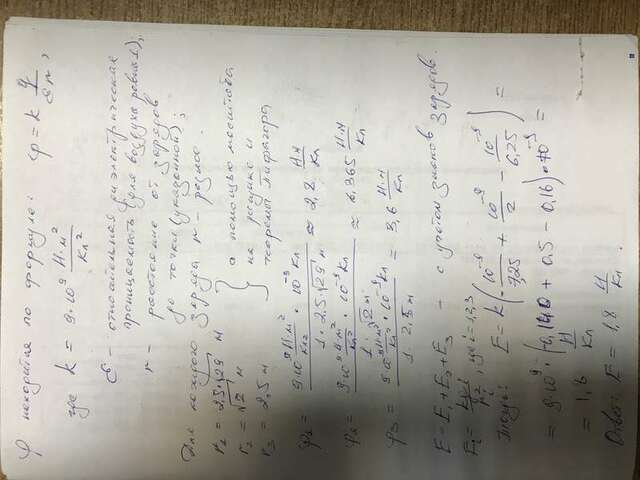 φ находится по формуле: φ = k q/(εr),
где k = 9·10⁹ Н·м²/Кл²
ε – относительная диэлектрическая
проницаемость (для воздуха равна 1);
r – расстояние от зарядов
до точки (указанной);
Для каждого заряда r – разное.
r₁ = 2,5·√29 м
r₂ = √2 м
r₃ = 2,5 м
с помощью масштаба
на рисунке и
теоремы Пифагора
φ₁ = (9·10⁹ Н·м²/Кл² · 10⁻⁹ Кл)/(1·2,5·√29 м) ≈ 2,2 Н·м/Кл
φ₂ = (9·10⁹ Н·м²/Кл² · 10⁻⁹ Кл)/(1·√2 м) ≈ 6,365 Н·м/Кл
φ₃ = (9·10⁹ Н·м²/Кл² · 10⁻⁹ Кл)/(1·2,5 м) = 3,6 Н·м/Кл
E = E₁ + E₂ + E₃ – с учётом знаков зарядов.
Eᵢ = kqᵢ/rᵢ², где i = 1,2,3
Тогда: E = k(-10⁻⁹/7,25 + 10⁻⁹/2 − 10⁻⁹/6,25) =
= 9·10⁹·(-0,140 + 0,5 − 0,16)·10⁻⁹ =
= 1,8 Н/Кл
Ответ: E = 1,8 Н/Кл.